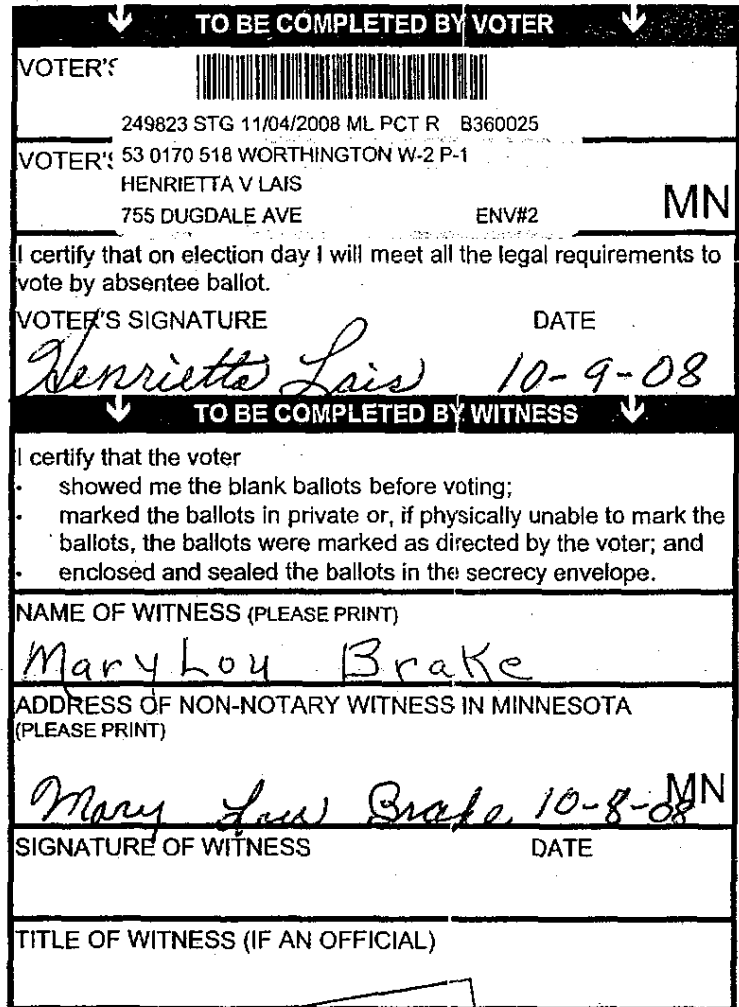 TO BE COMPLETED BY VOTER
VOTER'S
249823 STG 11/04/2008 ML PCT R B360025
VOTER'S 53 0170 518 WORTHINGTON W-2 P-1
HENRIETTA V LAIS
755 DUGDALE AVE ENV#2 MN
I certify that on election day I will meet all the legal requirements to
vote by absentee ballot.
VOTER'S SIGNATURE DATE
Henrietta Lais 10-9-08
TO BE COMPLETED BY WITNESS
I certify that the voter
· showed me the blank ballots before voting;
· marked the ballots in private or, if physically unable to mark the
ballots, the ballots were marked as directed by the voter; and
· enclosed and sealed the ballots in the secrecy envelope.
NAME OF WITNESS (PLEASE PRINT)
Mary Lou Brake
ADDRESS OF NON-NOTARY WITNESS IN MINNESOTA
(PLEASE PRINT)
Mary Lou Brake 10-8-08 MN
SIGNATURE OF WITNESS DATE
TITLE OF WITNESS (IF AN OFFICIAL)